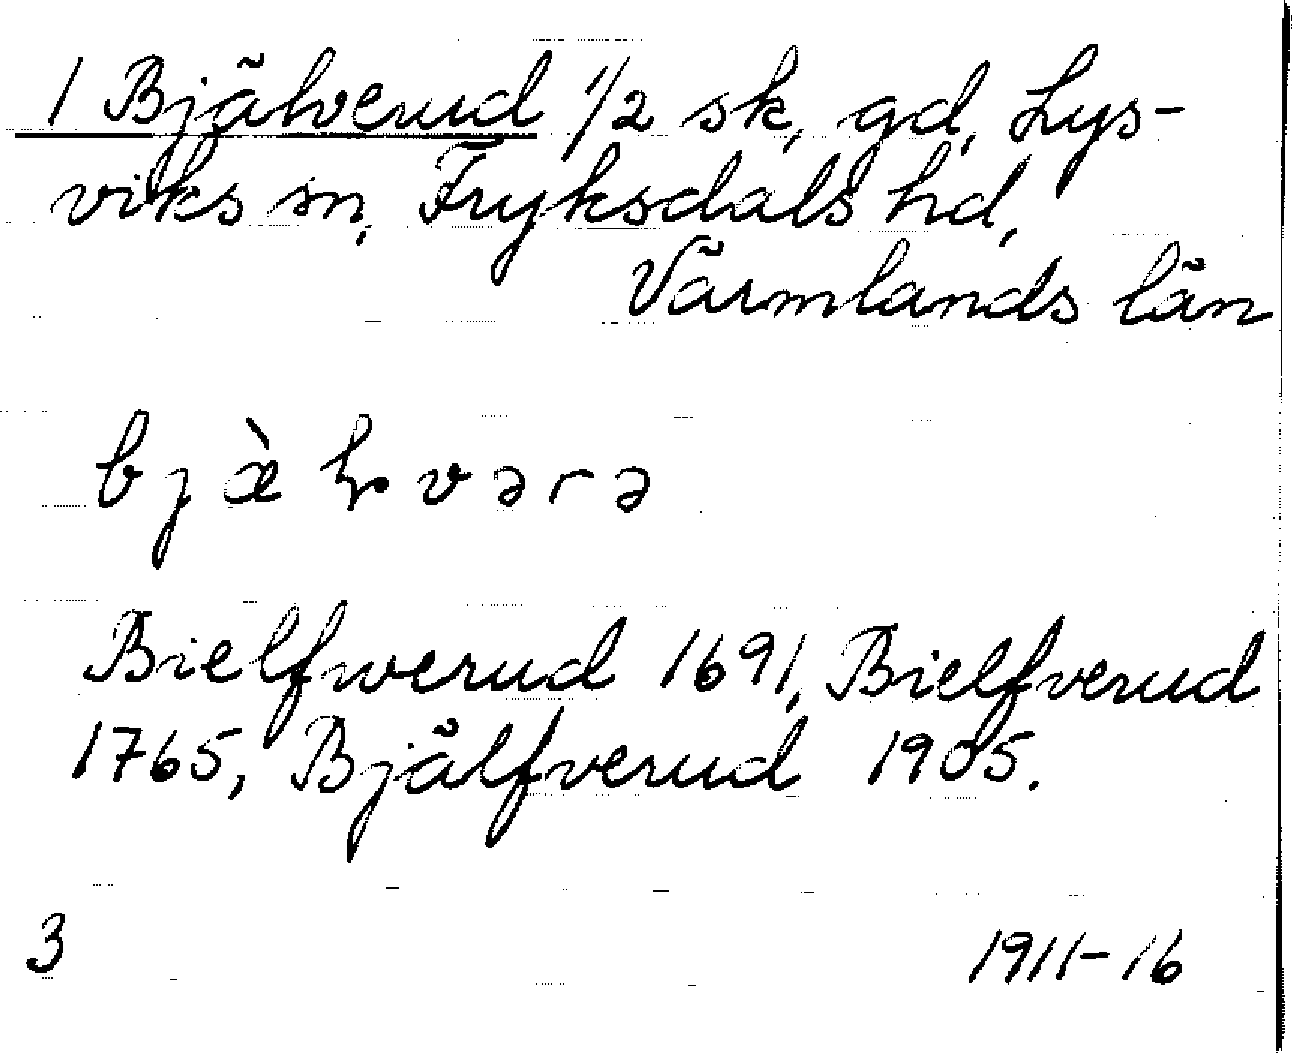 1 Bjälverud 1/2 sk, gd, Lys-
viks sn, Fryksdals hd,
Värmlands län
Bielfwerud 1691, Bielfverud
1765, Bjälfverud 1905.
3 1911-16